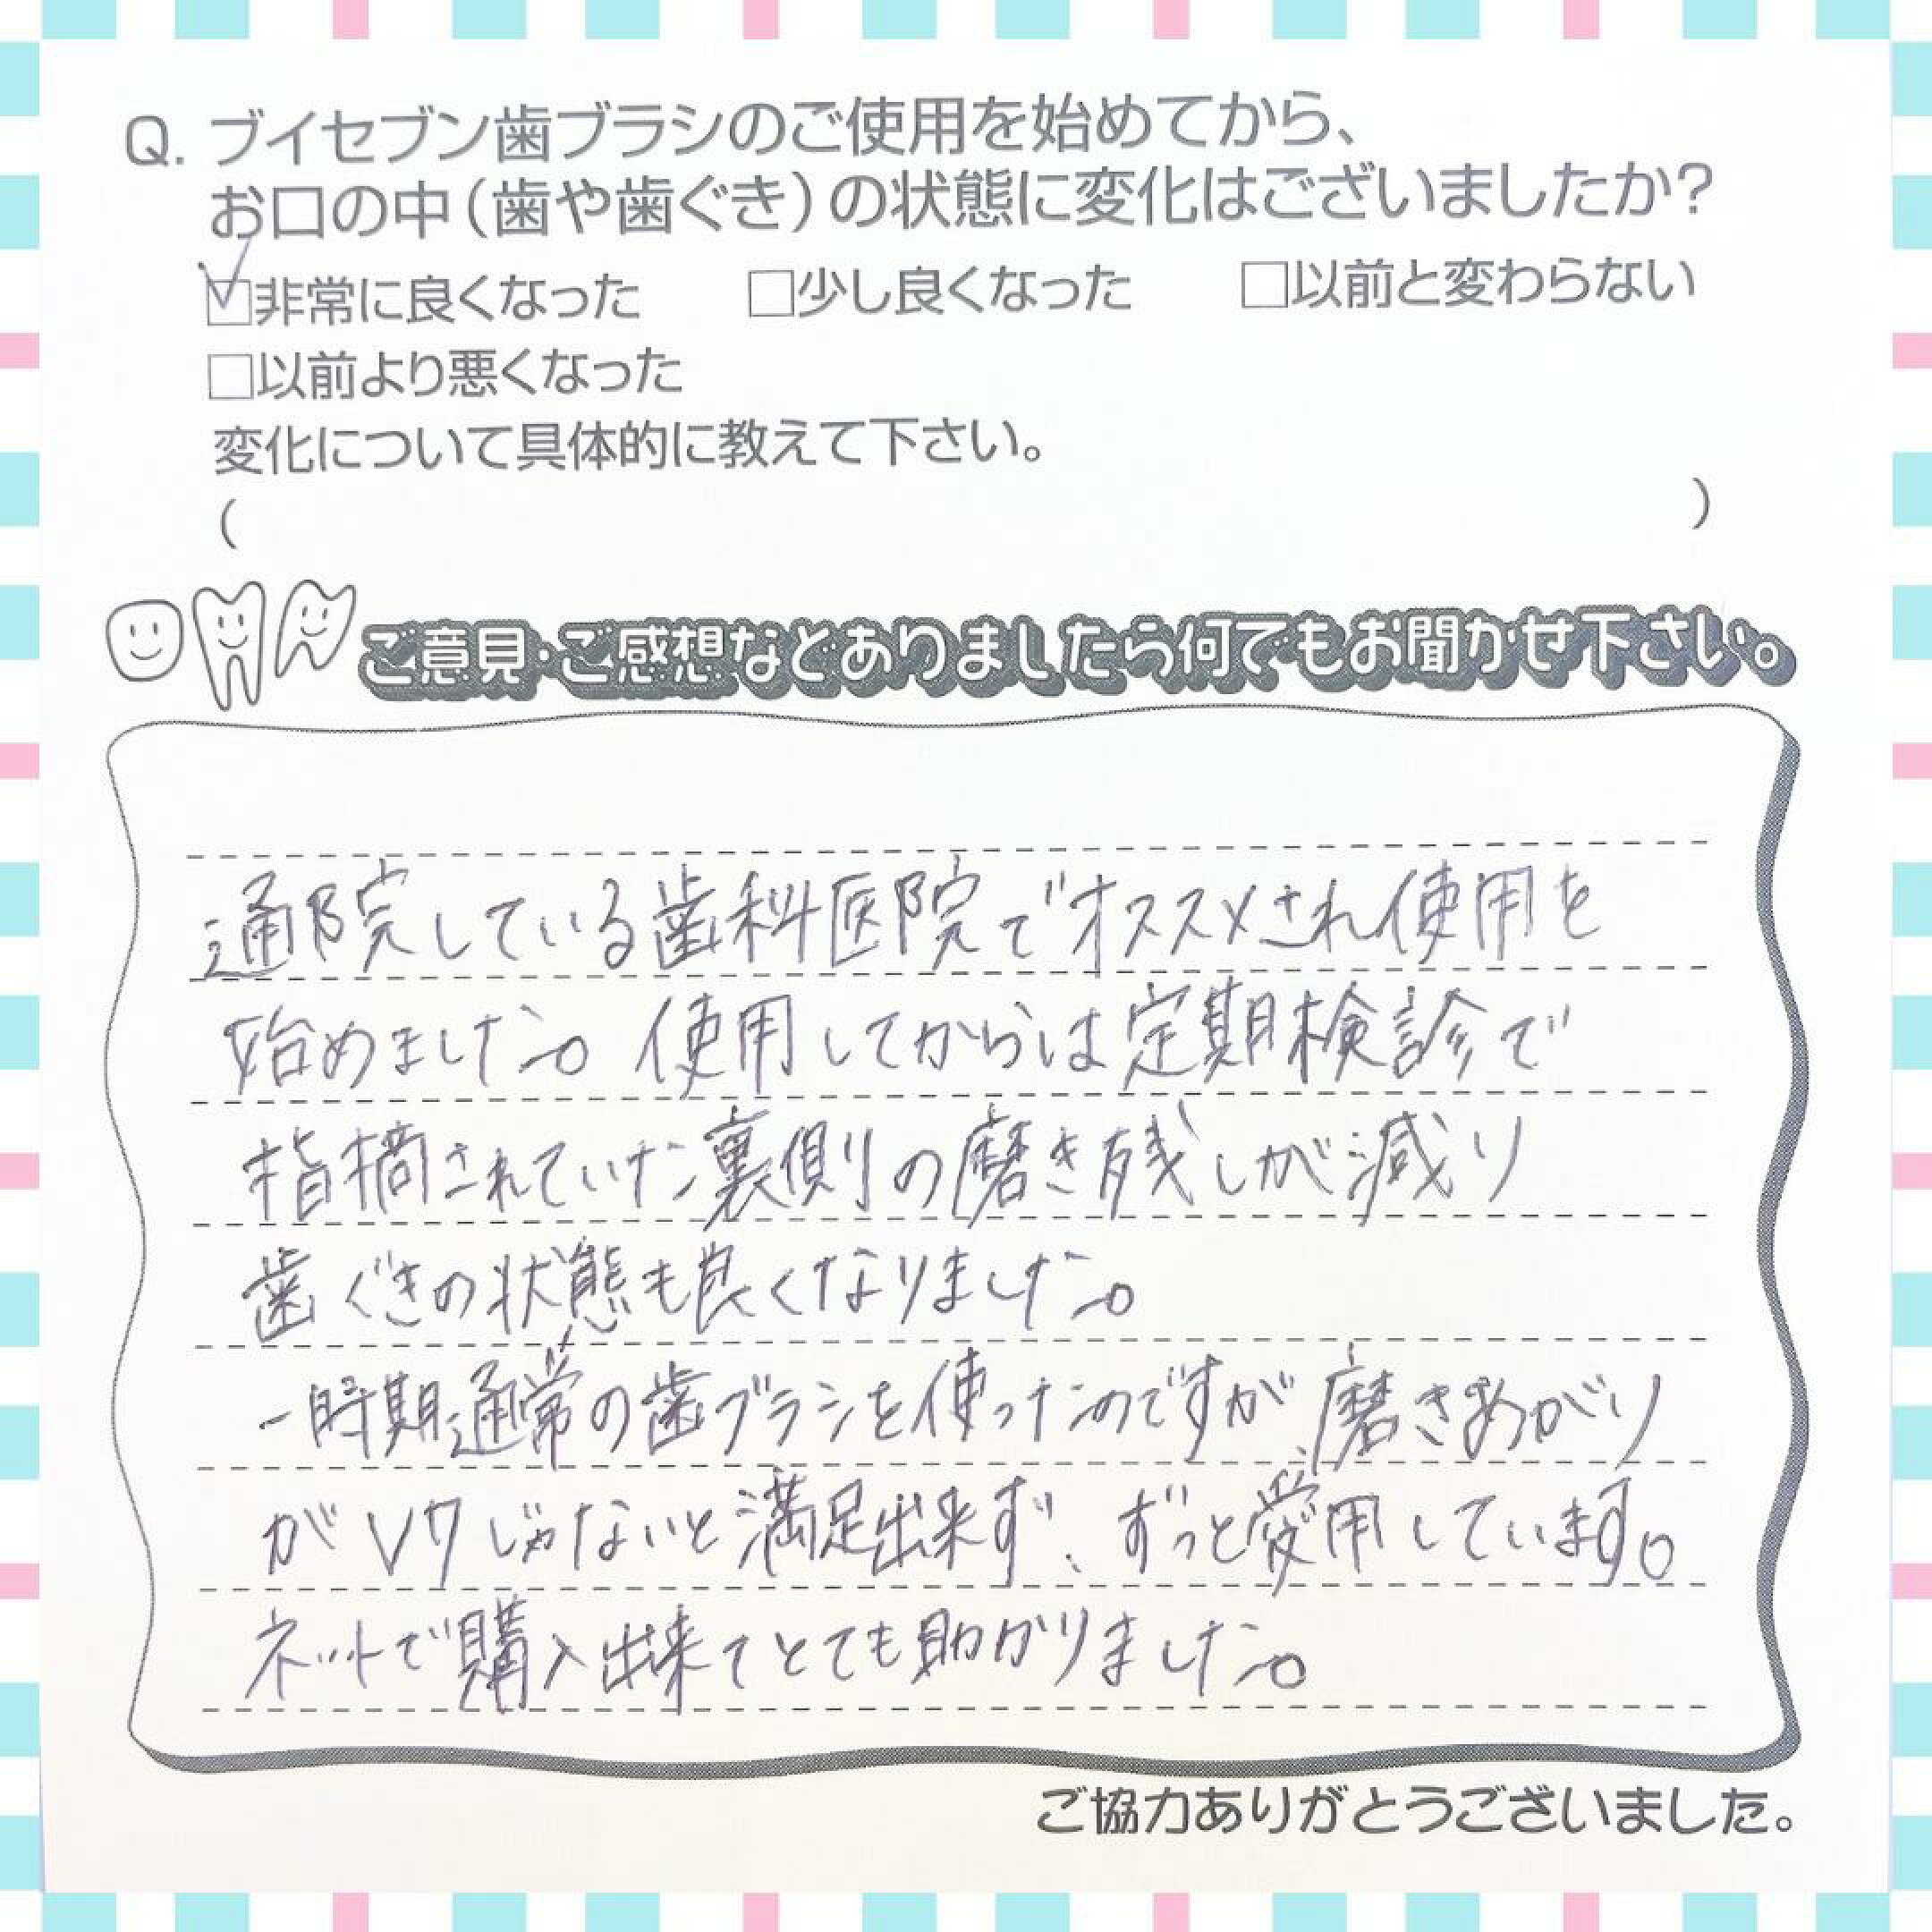 Q. ブイセブン歯ブラシのご使用を始めてから、
お口の中(歯や歯ぐき)の状態に変化はございましたか?
☑非常に良くなった □少し良くなった □以前と変わらない
□以前より悪くなった
変化について具体的に教えて下さい。
( )
ご意見・ご感想などありましたら何でもお聞かせ下さい。
通院している歯科医院でオススメされ使用を
始めました。使用してからは定期検診で
指摘されていた裏側の磨き残しが減り
歯ぐきの状態も良くなりました。
一時期通常の歯ブラシを使ったのですが、磨きあがり
がV7じゃないと満足出来ず、ずっと愛用しています。
ネットで購入出来てとても助かりました。
ご協力ありがとうございました。